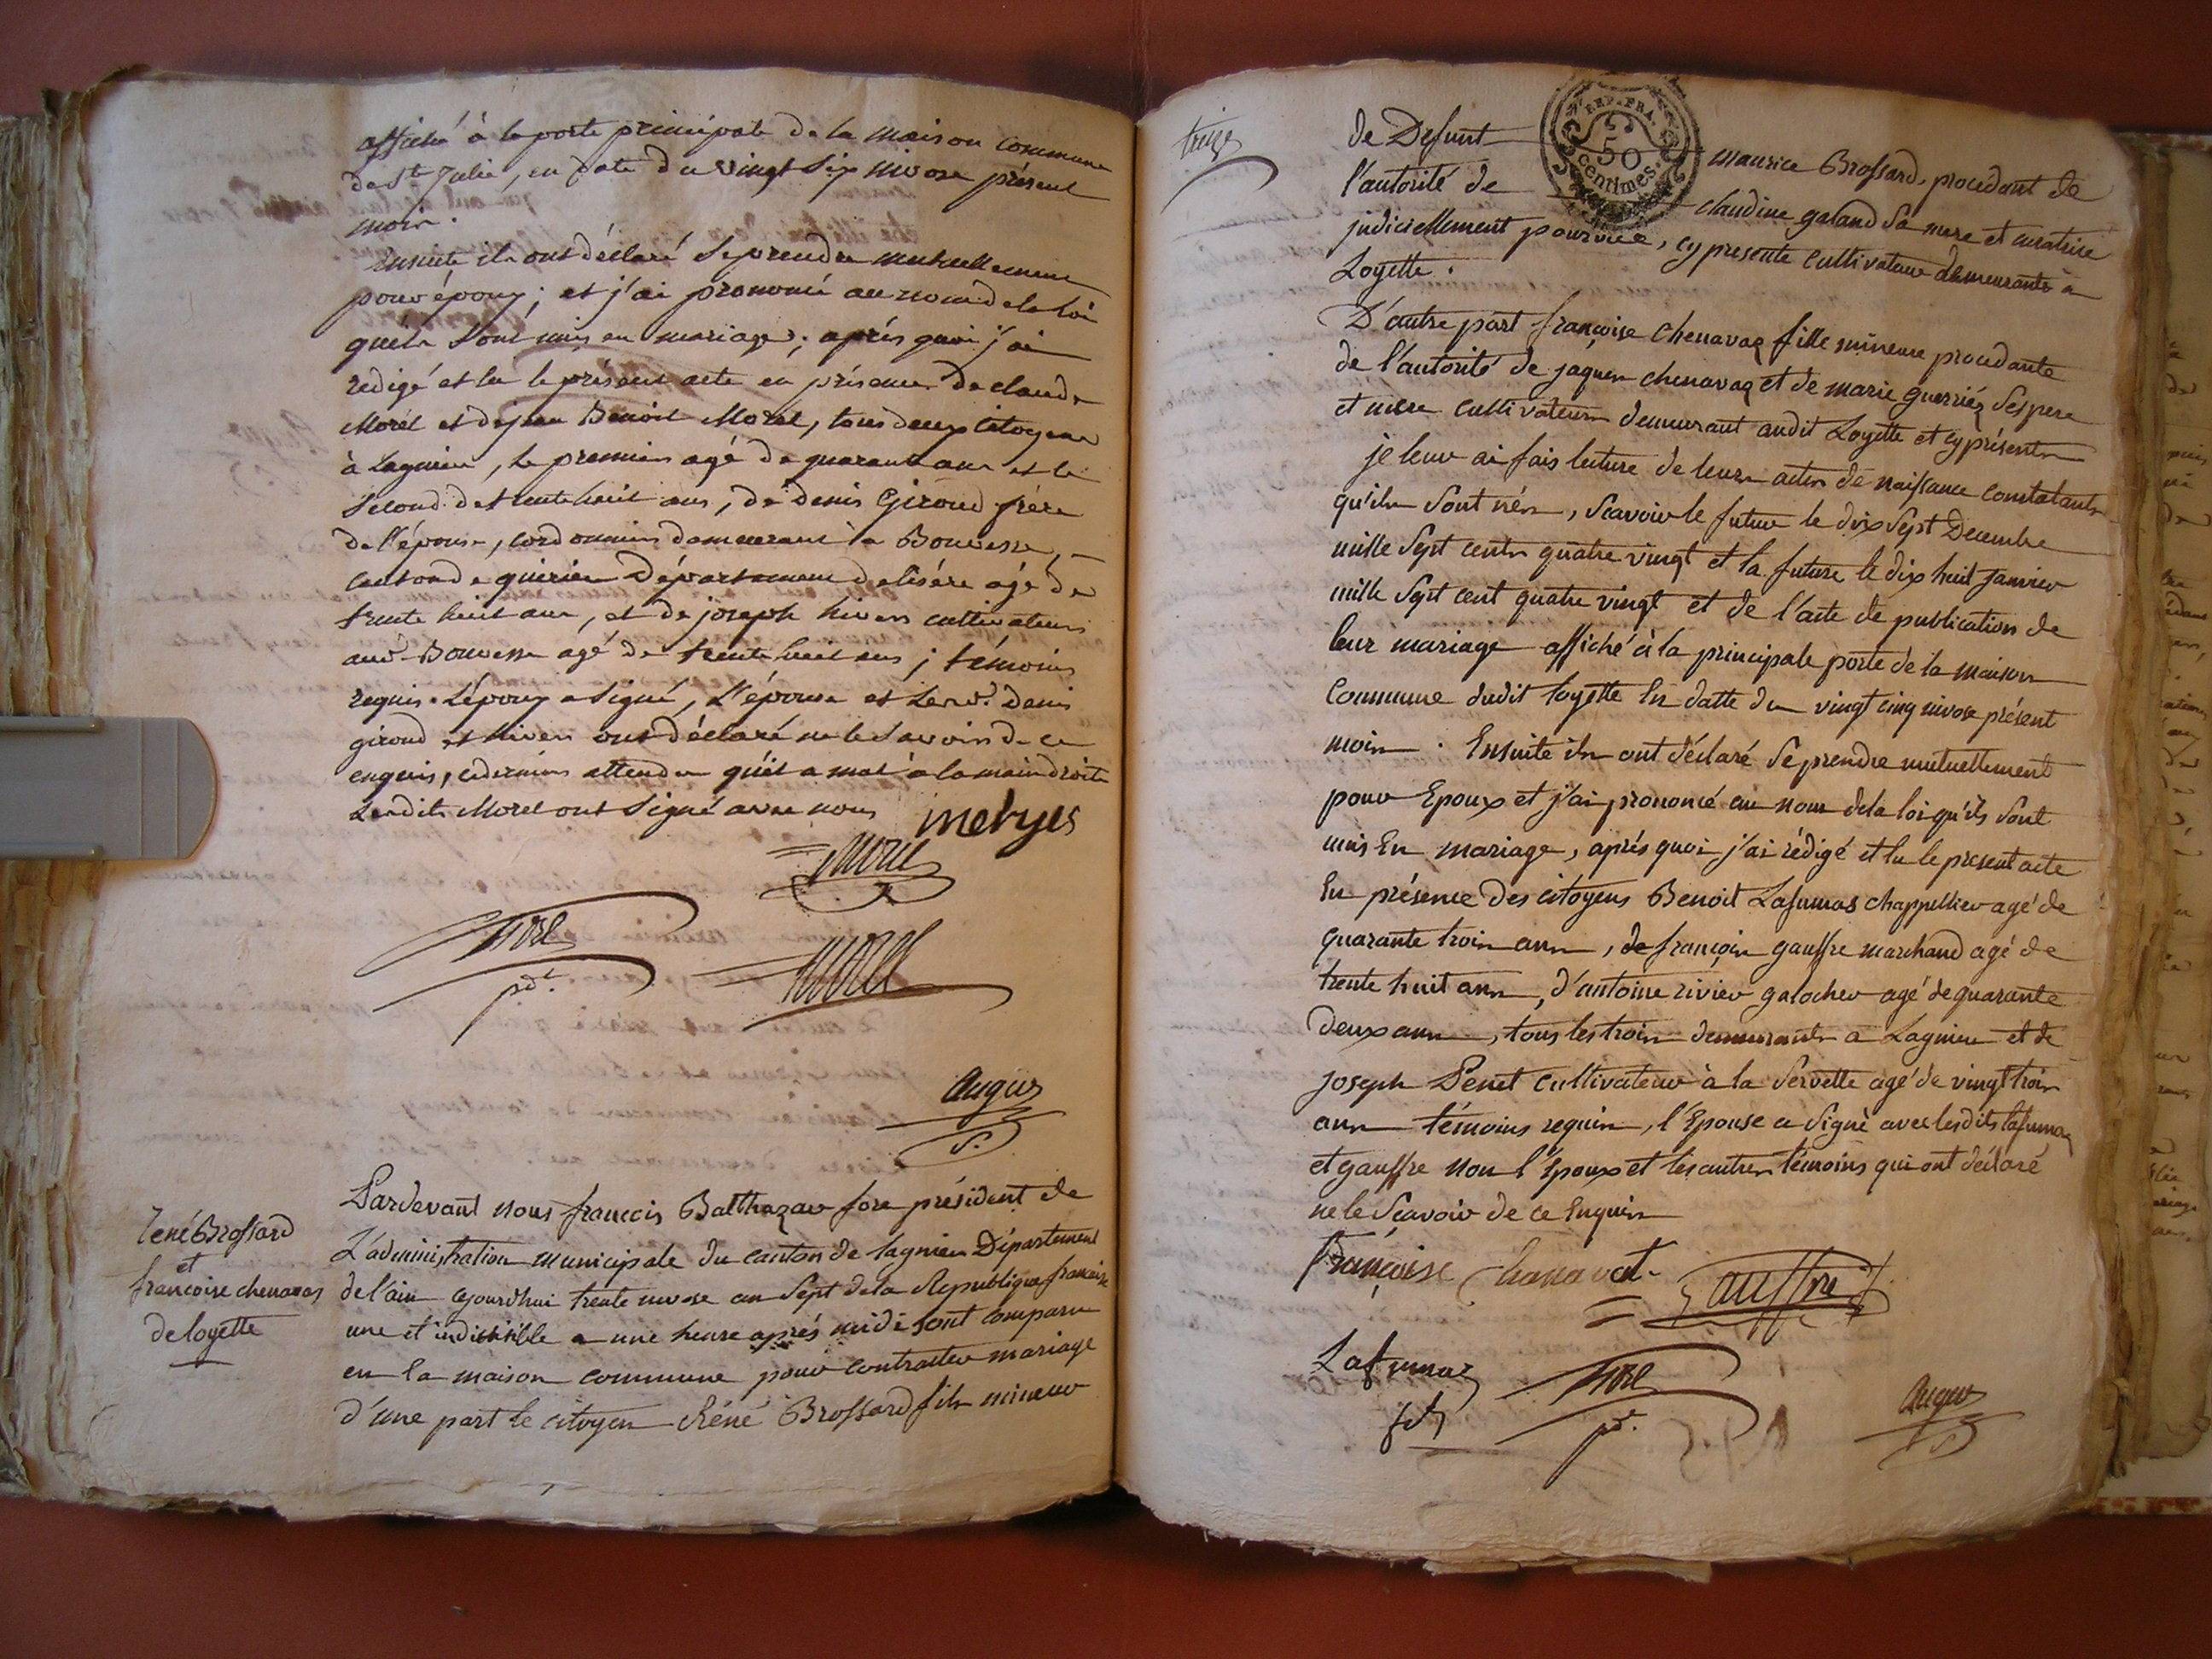 affiché à la porte principale de la maison commune
de St Julie, en date du vingt six nivose présent
mois.
Ensuite ils ont déclaré se prendre mutuellement
pour époux; et j'ai prononcé au nom de la loi
qu'ils sont unis en mariage; après quoi j'ai
redigé et lu le présent acte en présence de claude
Morel et de jean Benoit Morel, tous deux citoyens
à Lagnieu, le premier agé de quarante ans et le
second de trente huit ans, de denis Giroud frère
de l'épouse, cordonnier demeurant à Bouvesse,
canton de quirieu Département de lisère agé de
trente huit ans, et de joseph hivers cultivateur
aud. Bouvesse agé de trente huit ans; témoins
requis. L'époux a signé, l'épouse et led. Denis
giroud et hivers ont déclaré ne le savoir de ce
enquis, ce dernier attendu qu'il a mal à la main droite
Lesdits Morel ont signé avec nous
morel
fore
pdt.
morel
auger
s.
René Brossard
et
francoise chenavas
de loyette
Pardevant nous francois Balthazar fore président de
L'administration municipale du canton de lagnieu Département
de l'ain cejourdhui trente nivose an sept de la République francaise
une et indivisible a une heure après midi sont comparu
en la maison commune pour contracter mariage
d'une part le citoyen Réné Brossard fils mineur
treize
REP. FRA.
50
centimes.
de Defunt maurice Brossard, procedant de
l'autorité de claudine galand sa mere et curatrice
judiciellement pourvue, cy presente cultivateurs demeurants à
Loyette.
D'autre part françoise Chenavaz fille mineure procedante
de l'autorité de jaques chenavaz et de marie guerriéz ses pere
et mere cultivateurs demeurant audit Loyette et cy présents
je leur ai fais lecture de leurs actes de naissance constatants
qu'ils sont nés, scavoir le futur le dix sept Decembre
mille sept cents quatre vingt et la future le dix huit janvier
mille sept cent quatre vingt et de l'acte de publication de
leur mariage affiché à la principale porte de la maison
Commune dudit loyette En datte du vingt cinq nivose présent
mois. Ensuite ils ont déclaré se prendre mutuellement
pour Epoux et j'ai prononcé au nom de la loi qu'ils sont
unis En mariage, aprés quoi j'ai rédigé et lu le present acte
En présence des citoyens Benoit Lafumas chappellier agé de
quarante trois ans, de françois gauffre marchand agé de
trente huit ans, d'antoine rivier galocher agé de quarante
deux ans, tous les trois demeurants a Lagnieu et de
joseph Penet cultivateur à la Servette agé de vingt trois
ans témoins requis, l'Epouse a signé avec lesdits lafumaz
et gauffre non l'Epoux et les autres témoins qui ont déclaré
ne le scavoir de ce Enquis
françoise chanavat
gauffre
Lafumaz
fore
pdt.
auger
s.